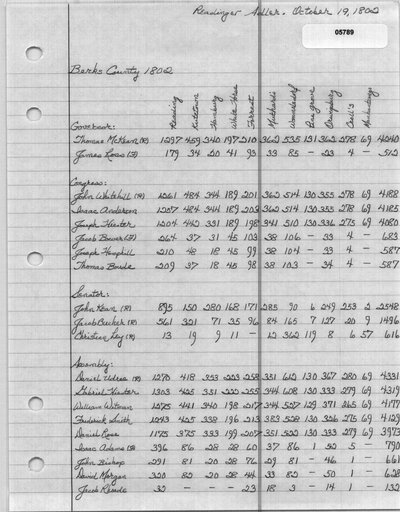 Readinger Adler. October 19, 1802
05789
Berks County 1802
Reading Kutztown Hamburg White Horse Forrest Womelsdorf Pine grove Orwigsburg
Governor:
Thomas McKean (R) 1297 459 340 197 210 362 535 131 362 278 69 4240
James Ross (F) 179 34 20 41 93 33 85 - 23 4 - 512
Congress:
John Whitehill (R) 1261 484 344 189 201 362 514 130 355 278 69 4188
Isaac Anderson 1257 484 344 189 203 362 514 130 355 278 69 4185
Joseph Hiester 1204 442 331 189 198 341 510 130 336 275 69 4080
Jacob Bower (F) 264 37 31 45 103 38 106 - 33 4 - 683
Joseph Hemphill 210 48 18 45 99 38 104 - 33 4 - 587
Thomas Boude 209 37 18 45 98 38 103 - 34 4 - 587
Senator:
John Kean (R) 895 150 280 168 171 285 90 6 249 253 2 2548
Jacob Bucher (R) 561 321 71 35 96 84 165 7 127 20 9 1496
Christian Ley (R) 13 19 9 11 - 12 362 119 8 6 57 616
Assembly:
Daniel Udree (R) 1270 418 353 223 258 351 612 130 367 280 69 4331
Gabriel Hiester 1303 425 351 222 255 344 608 130 333 279 69 4319
William Witman 1275 441 340 198 217 344 527 129 371 265 69 4177
Frederick Smith 1243 425 338 196 213 383 528 130 326 275 69 4129
Daniel Rose 1175 375 333 199 207 351 522 130 333 279 69 3973
Isaac Adams (F) 396 86 28 28 60 37 86 1 22 5 - 790
John Bishop 291 81 20 28 76 29 81 - 46 1 - 661
David Morgan 320 82 20 28 44 33 82 - 50 1 - 628
Jacob 32 - - - 23 18 3 - 14 1 - 132